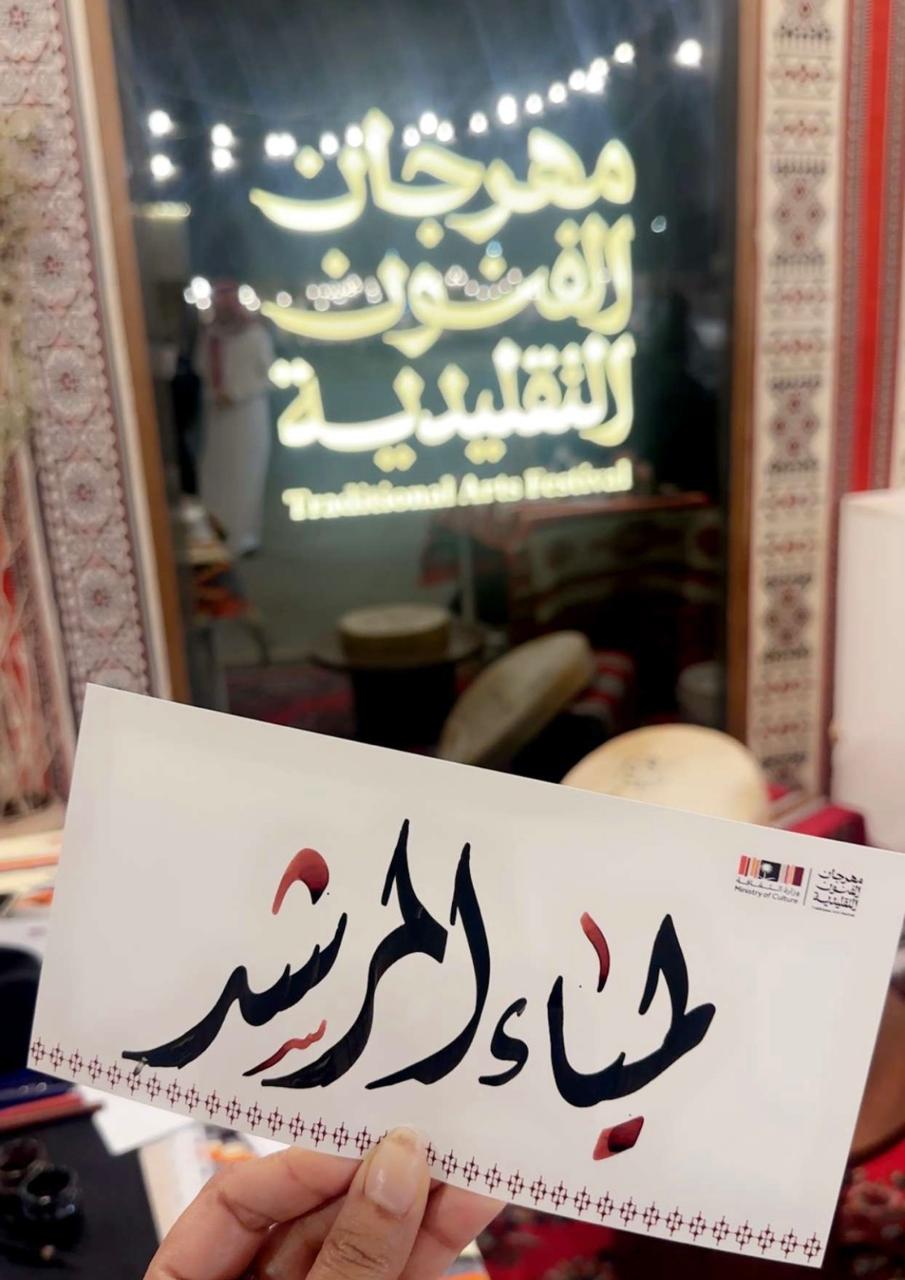 مهرجان
الفنون
التقليدية
Traditional Arts Festival
وزارة الثقافة
Ministry of Culture
مهرجان
الفنون
التقليدية
لمياء المرشد